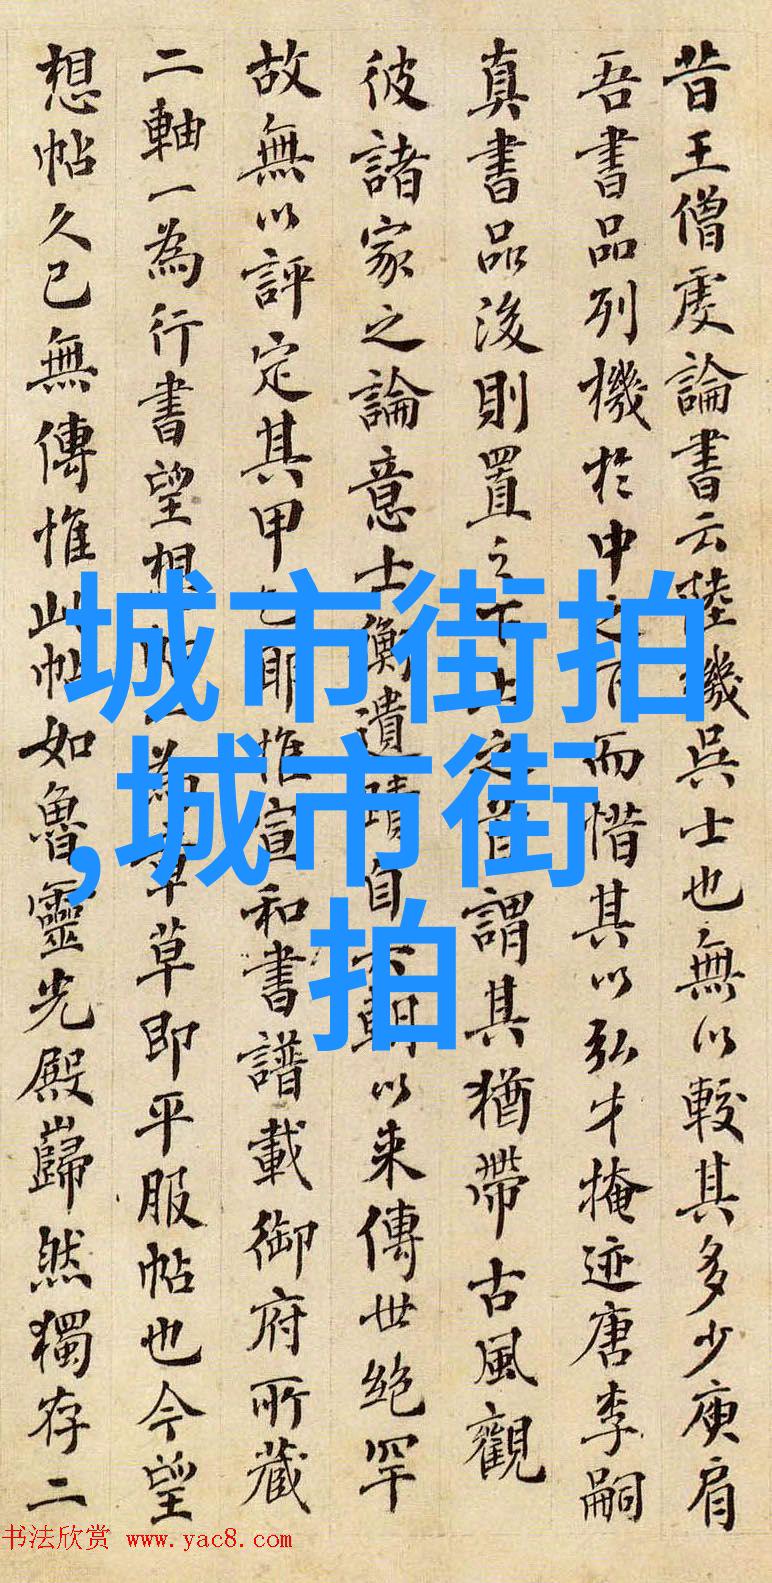 昔王僧虔論書云陸機吳士也無以較其多少庾肩
吾書品列機於中之下而惜其以弘才掩迹唐李嗣
真書品後則置之下上之謂其猶帶古風觀
彼諸家之論意士衡遺蹟自六朝以来傳世絶罕
故無以評定其甲乙耶惟宣和書譜載御府所藏
二軸一為行書望想為章草即平服帖也今望
想帖久已無傳惟此帖如魯靈光殿巋然獨存二
城市街拍
,城市街
拍
书法欣赏 www.yac8.com